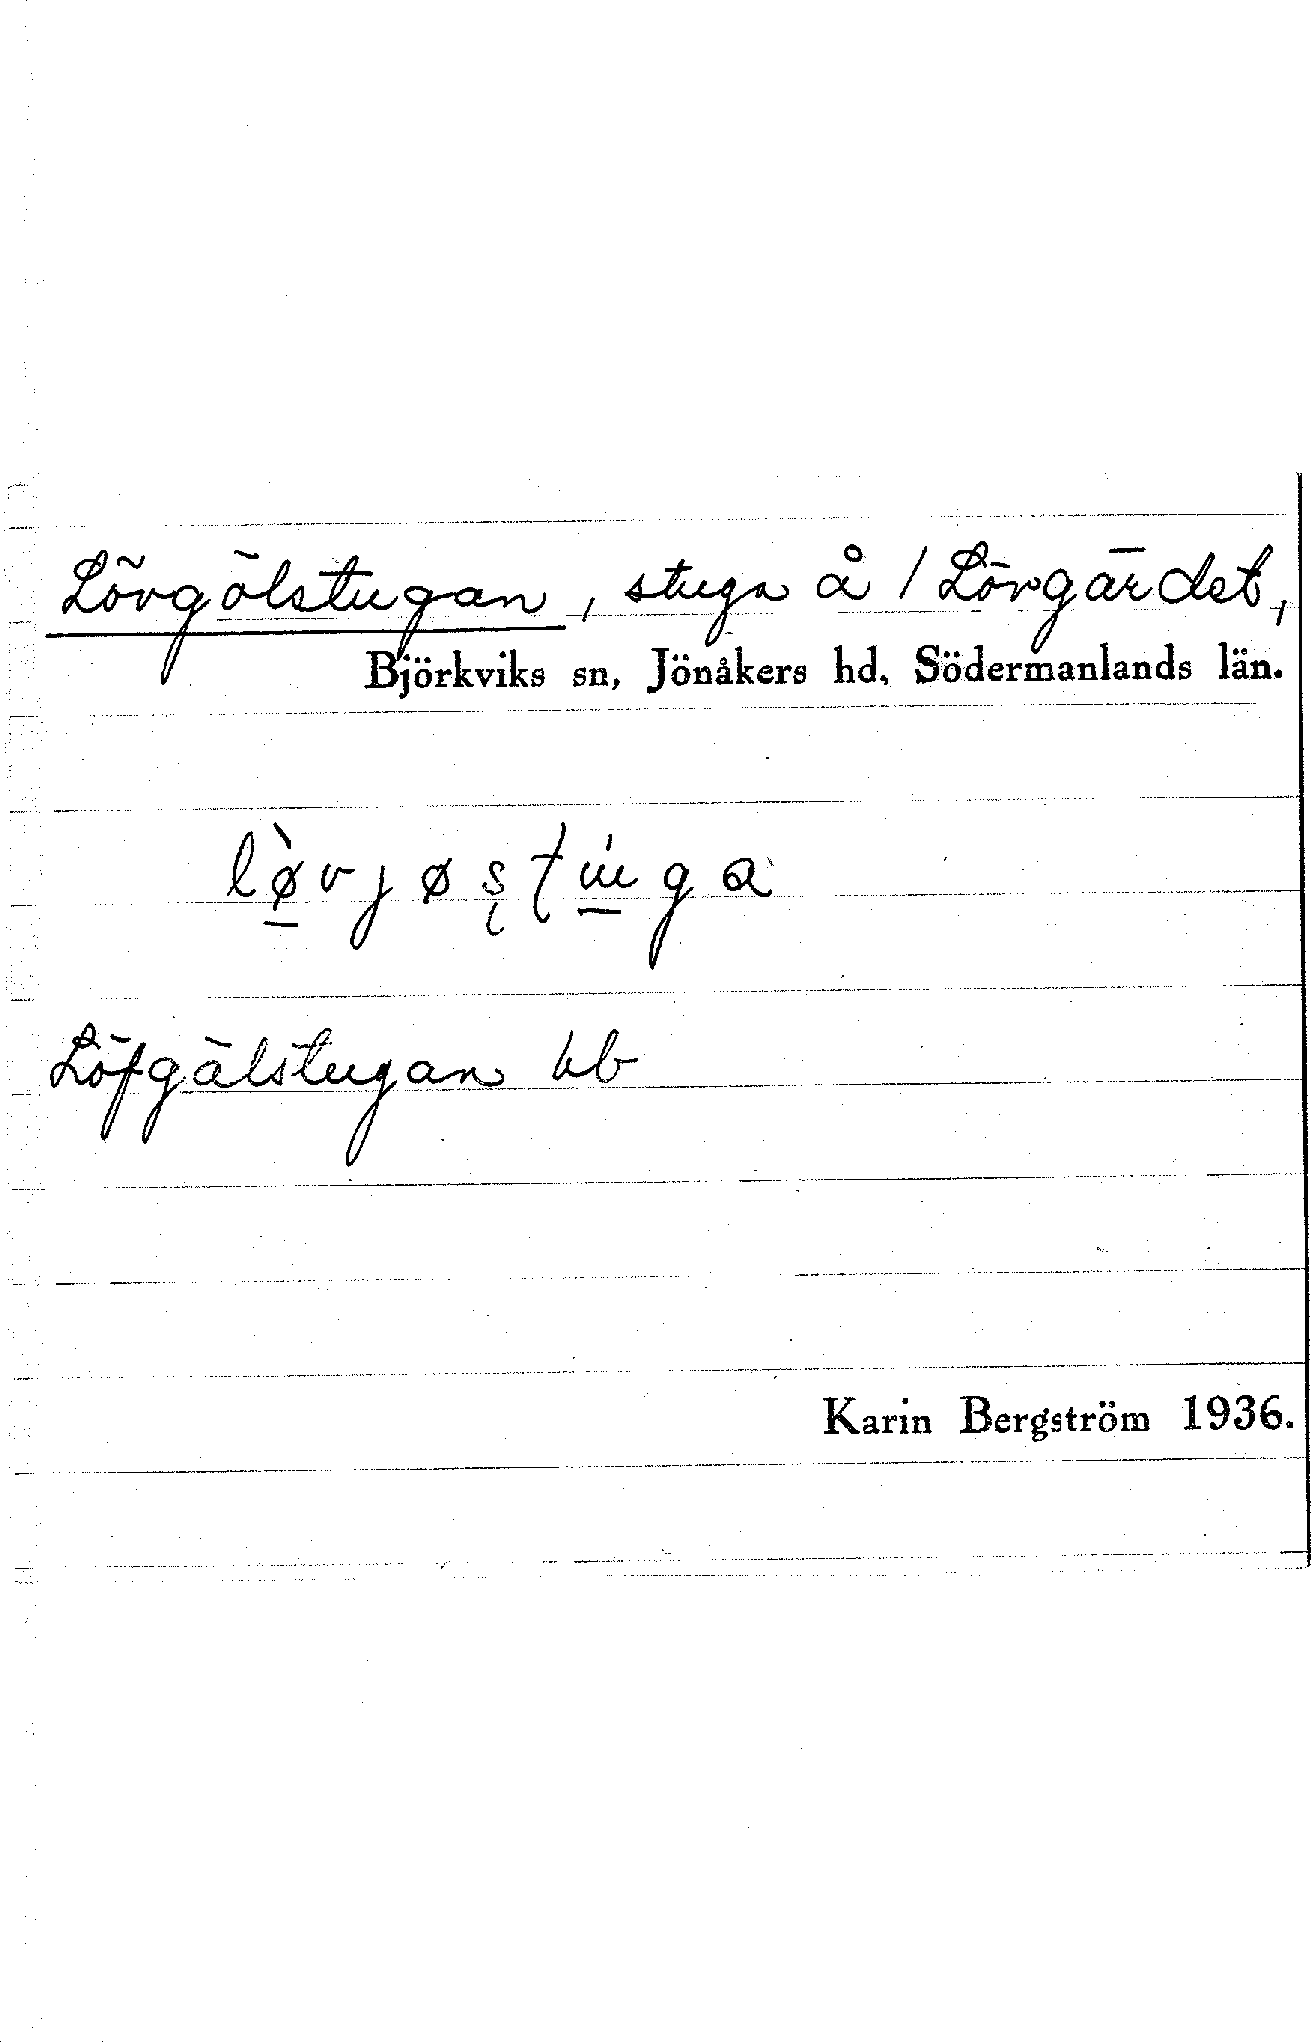 Lövgölstugan, stuga å / Lövgärdet,
Björkviks sn, Jönåkers hd, Södermanlands län.
Löfgälstugan kb
Karin Bergström 1936.